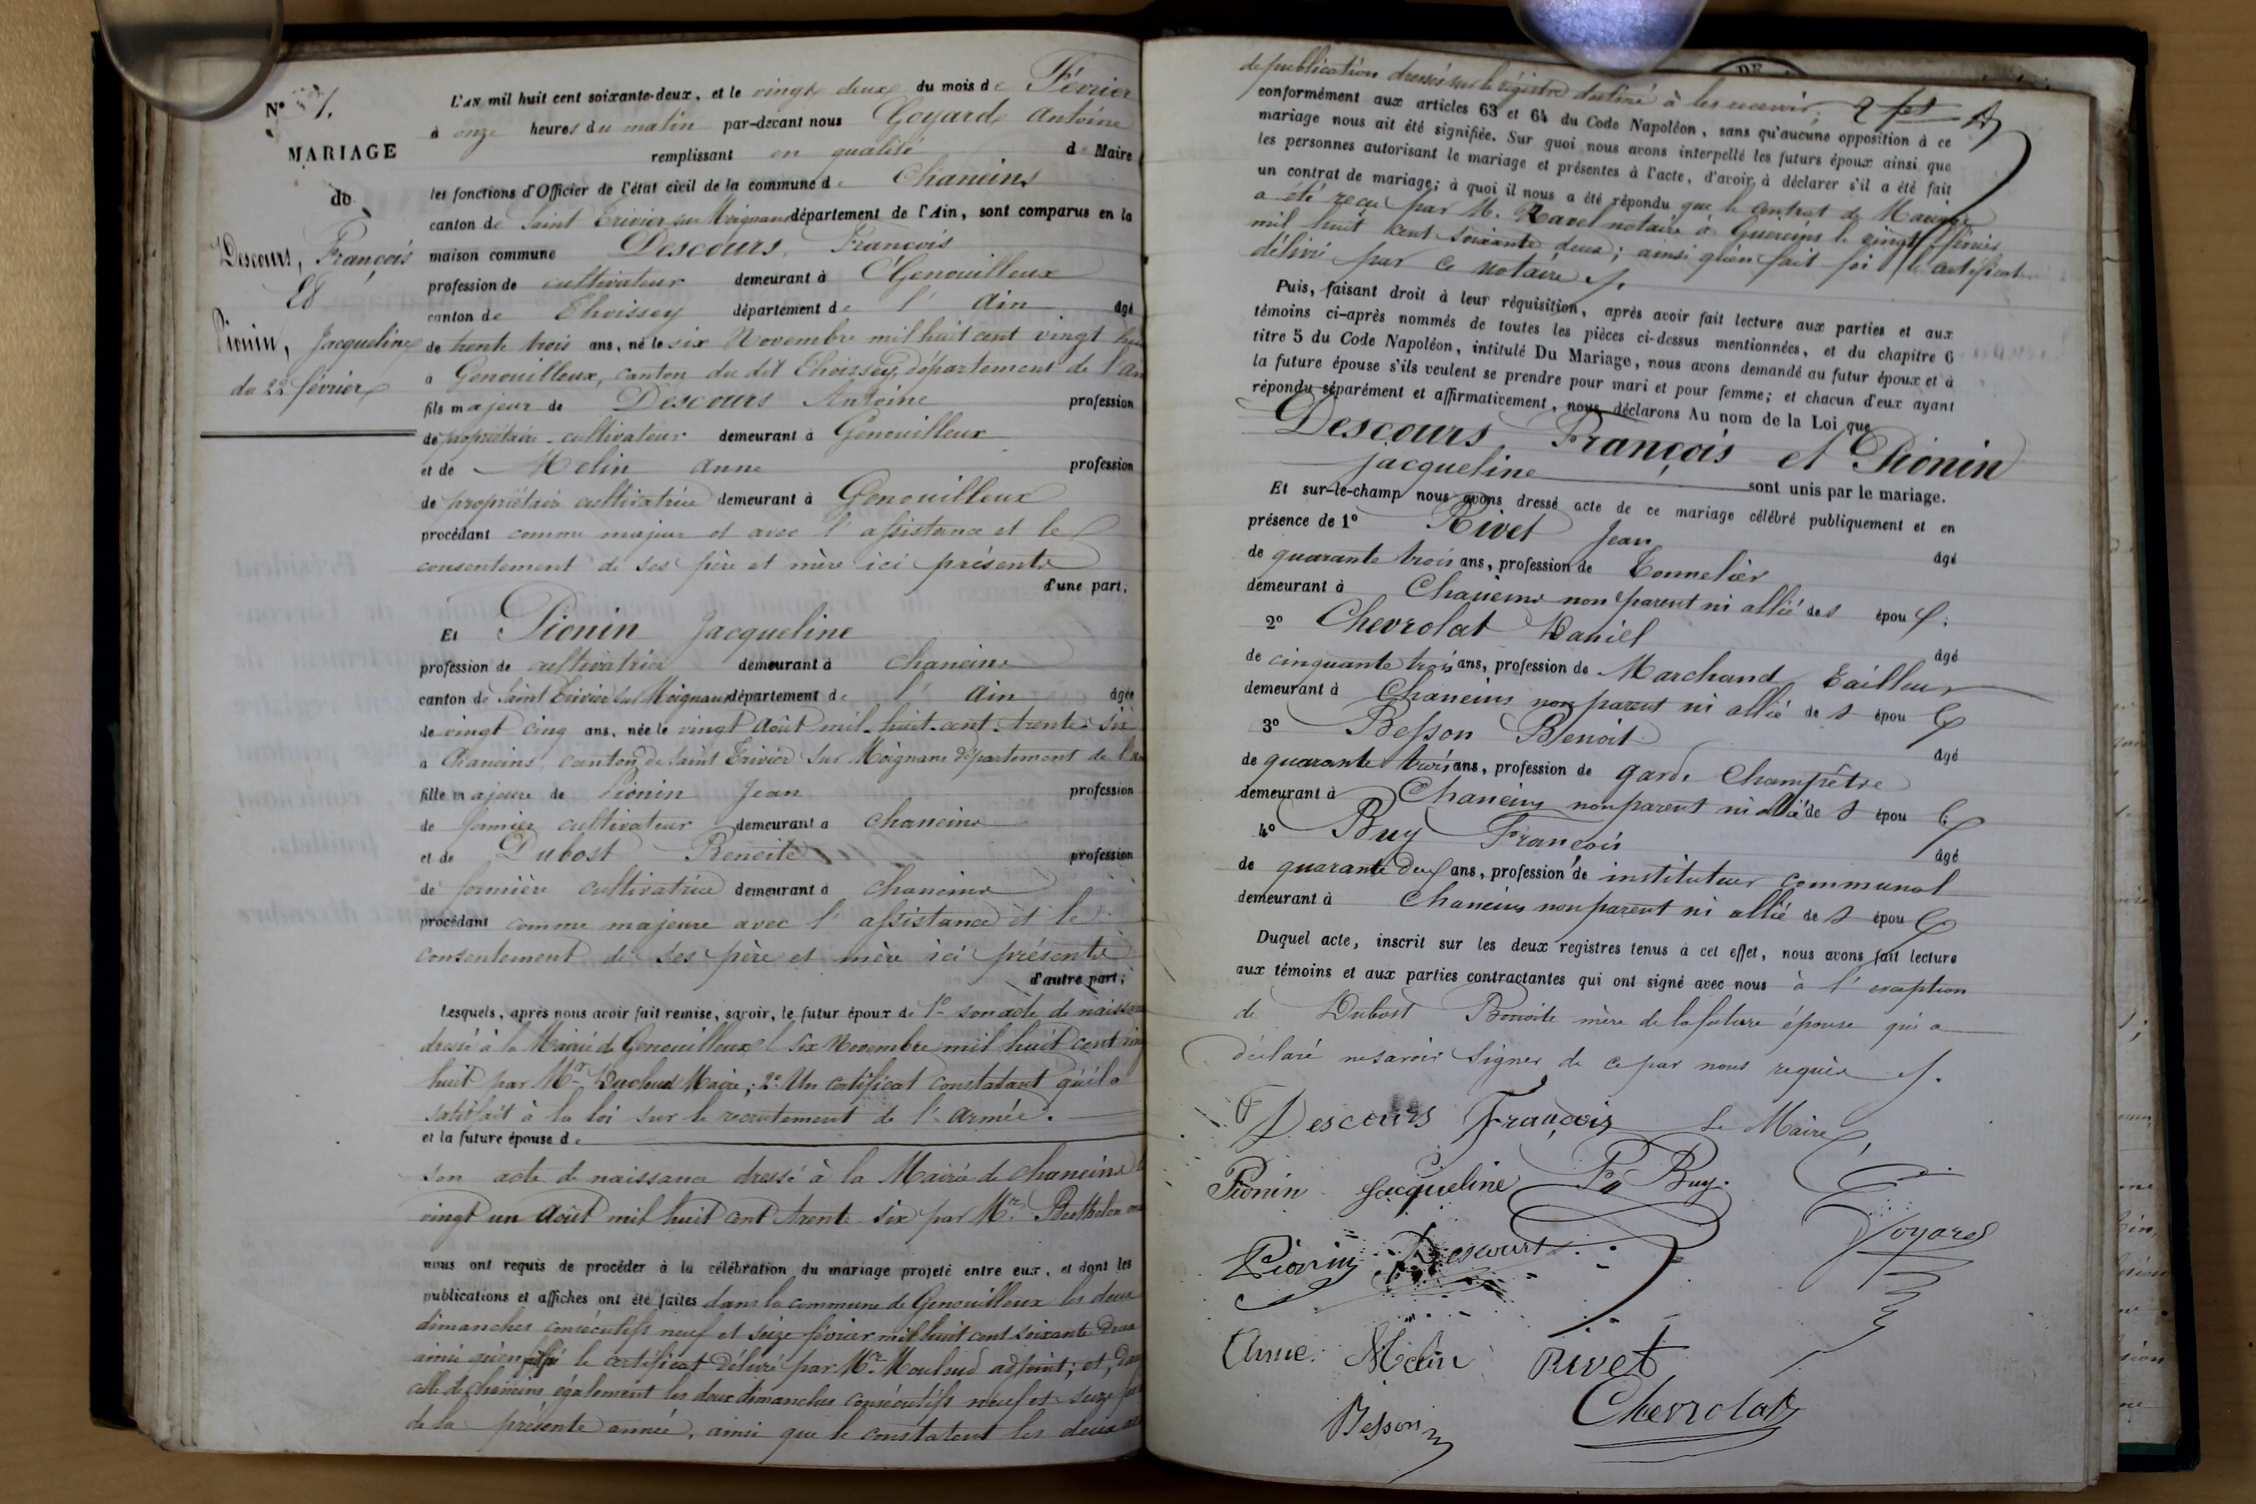 N° 7.
MARIAGE
de
Descours, François
Et
Pionin, Jacqueline
du 22 février
L'AN mil huit cent soixante-deux, et le vingt deux du mois de Février
à onze heures du matin par-devant nous Goyard Antoine
remplissant en qualité de Maire
les fonctions d'Officier de l'état civil de la commune de Chaneins
canton de Saint Trivier sur Moignans département de l'Ain, sont comparus en la
maison commune Descours, François
profession de cultivateur demeurant à Genouilleux
canton de Thoissey département de l'Ain âgé
de trente trois ans, né le six Novembre mil huit cent vingt huit
à Genouilleux, canton du dit Thoissey, département de l'Ain
fils majeur de Descours Antoine profession
de propriétaire cultivateur demeurant à Genouilleux
et de Melin Anne profession
de propriétaire cultivatrice demeurant à Genouilleux
procédant comme majeur et avec l'assistance et le
consentement de ses père et mère ici présents
d'une part,
Et Pionin Jacqueline
profession de cultivatrice demeurant à Chaneins
canton de Saint Trivier sur Moignans département de l'Ain âgée
de vingt cinq ans, née le vingt Août mil huit cent trente six
à Chaneins, canton de Saint Trivier sur Moignans département de l'Ain
fille majeure de Pionin Jean profession
de fermier cultivateur demeurant à Chaneins
et de Dubost Benoite profession
de fermière cultivatrice demeurant à Chaneins
procédant comme majeure avec l'assistance et le
consentement de ses père et mère ici présents
d'autre part;
Lesquels, après nous avoir fait remise, savoir, le futur époux de 1° son acte de naissance
dressé à la Mairie de Genouilleux le six Novembre mil huit cent vingt
huit par Mr Maire; 2° Un certificat constatant qu'il a
satisfait à la loi sur le recrutement de l'Armée.
et la future épouse de
son acte de naissance dressé à la Mairie de Chaneins le
vingt un Août mil huit cent trente six par Mr. Berthelon
nous ont requis de procéder à la célébration du mariage projeté entre eux, et dont les
publications et affiches ont été faites dans la commune de Genouilleux les deux
dimanches consécutifs neuf et seize février mil huit cent soixante deux
ainsi qu'en le certificat délivré par Mr. adjoint; et, dans
celle de Chaneins également les deux dimanches consécutifs neuf et seize
de la présente année, ainsi que le constatent les deux
de publication dressés sur le registre destiné à les recevoir,
conformément aux articles 63 et 64 du Code Napoléon, sans qu'aucune opposition à ce
mariage nous ait été signifiée. Sur quoi nous avons interpellé les futurs époux ainsi que
les personnes autorisant le mariage et présentes à l'acte, d'avoir à déclarer s'il a été fait
un contrat de mariage; à quoi il nous a été répondu que le contrat de Mariage
a été reçu par M. Ravel notaire à Guereins le vingt février
mil huit cent soixante deux; ainsi qu'en fait foi le certificat
délivré par ce notaire.
Puis, faisant droit à leur réquisition, après avoir fait lecture aux parties et aux
témoins ci-après nommés de toutes les pièces ci-dessus mentionnées, et du chapitre 6
titre 5 du Code Napoléon, intitulé Du Mariage, nous avons demandé au futur époux et à
la future épouse s'ils veulent se prendre pour mari et pour femme; et chacun d'eux ayant
répondu séparément et affirmativement, nous déclarons Au nom de la Loi que
Descours François et Pionin
Jacqueline sont unis par le mariage.
Et sur-le-champ nous avons dressé acte de ce mariage célébré publiquement et en
présence de 1° Rivet Jean âgé
de quarante trois ans, profession de Tonnelier
demeurant à Chaneins non parent ni allié des époux.
2° Chevrolat Daniel âgé
de cinquante trois ans, profession de Marchand Tailleur
demeurant à Chaneins non parent ni allié des époux
3° Besson Benoit âgé
de quarante trois ans, profession de garde Champêtre
demeurant à Chaneins non parent ni allié des époux
4° Buy François âgé
de quarante deux ans, profession de instituteur communal
demeurant à Chaneins non parent ni allié des époux
Duquel acte, inscrit sur les deux registres tenus à cet effet, nous avons fait lecture
aux témoins et aux parties contractantes qui ont signé avec nous à l'exception
de Dubost Benoite mère de la future épouse qui a
déclaré ne savoir signer de ce par nous requise.
Descours François Le Maire,
Pionin Jacqueline Fs Buy.
Goyard
Pionin Descours
Anne Melin Rivet
Chevrolat
Besson